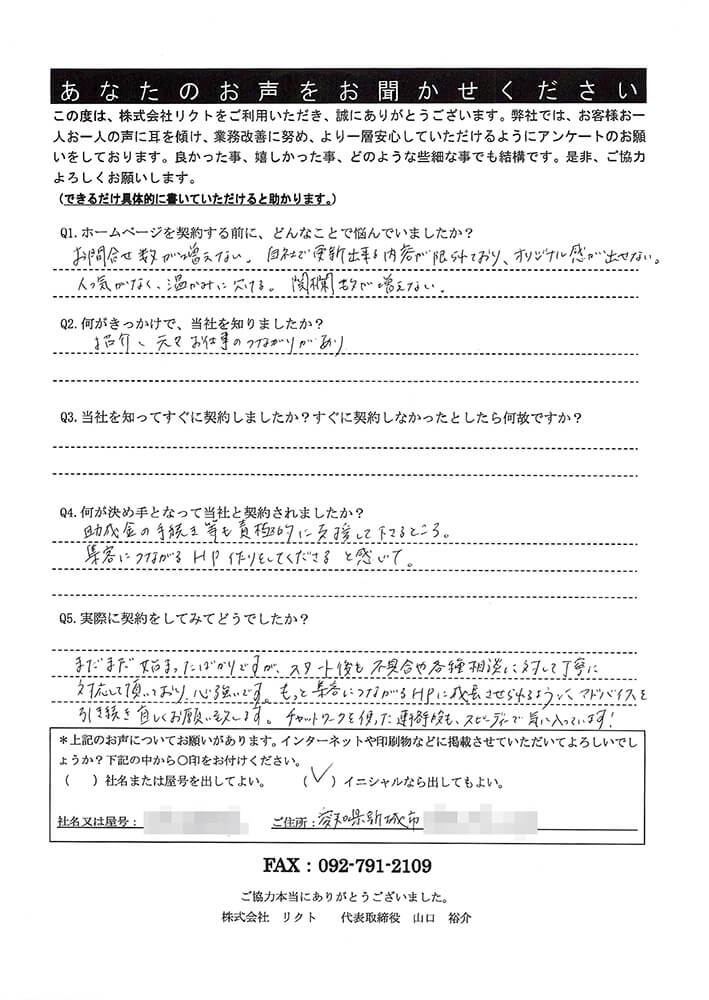 あなたのお声をお聞かせください
この度は、株式会社リクトをご利用いただき、誠にありがとうございます。弊社では、お客様お一
人お一人の声に耳を傾け、業務改善に努め、より一層安心していただけるようにアンケートのお願
いをしております。良かった事、嬉しかった事、どのような些細な事でも結構です。是非、ご協力
よろしくお願いします。
(できるだけ具体的に書いていただけると助かります。)
Q1.ホームページを契約する前に、どんなことで悩んでいましたか？
お問合せ数が増えない。自社で更新出来る内容が限られており、オリジナル感が出せない。
人っ気がなく、温かみに欠ける。閲欄数が増えない。
Q2.何がきっかけで、当社を知りましたか？
紹介、元々お仕事のつながりがあり
Q3.当社を知ってすぐに契約しましたか？すぐに契約しなかったとしたら何故ですか？
Q4.何が決め手となって当社と契約されましたか？
助成金の手続き等も積極的に支援して下さるところ。
集客につながるHP作りをしてくださると感じて。
Q5.実際に契約をしてみてどうでしたか？
まだまだ始まったばかりですが、スタート後も不具合や各種相談に対して丁寧に
対応して頂いており、心強いです。もっと集客につながるHPに成長させられるよう、アドバイスを
引き続き宜しくお願い致します。チャットワークを使った連絡手段も、スピーディで気に入っています！
＊上記のお声についてお願いがあります。インターネットや印刷物などに掲載させていただいてよろしいでし
ょうか？下記の中から〇印をお付けください。
（　）社名または屋号を出してよい。　（✓）イニシャルなら出してもよい。
社名又は屋号：　ご住所：愛知県新城市
FAX：092-791-2109
ご協力本当にありがとうございました。
株式会社　リクト　　代表取締役　山口　裕介